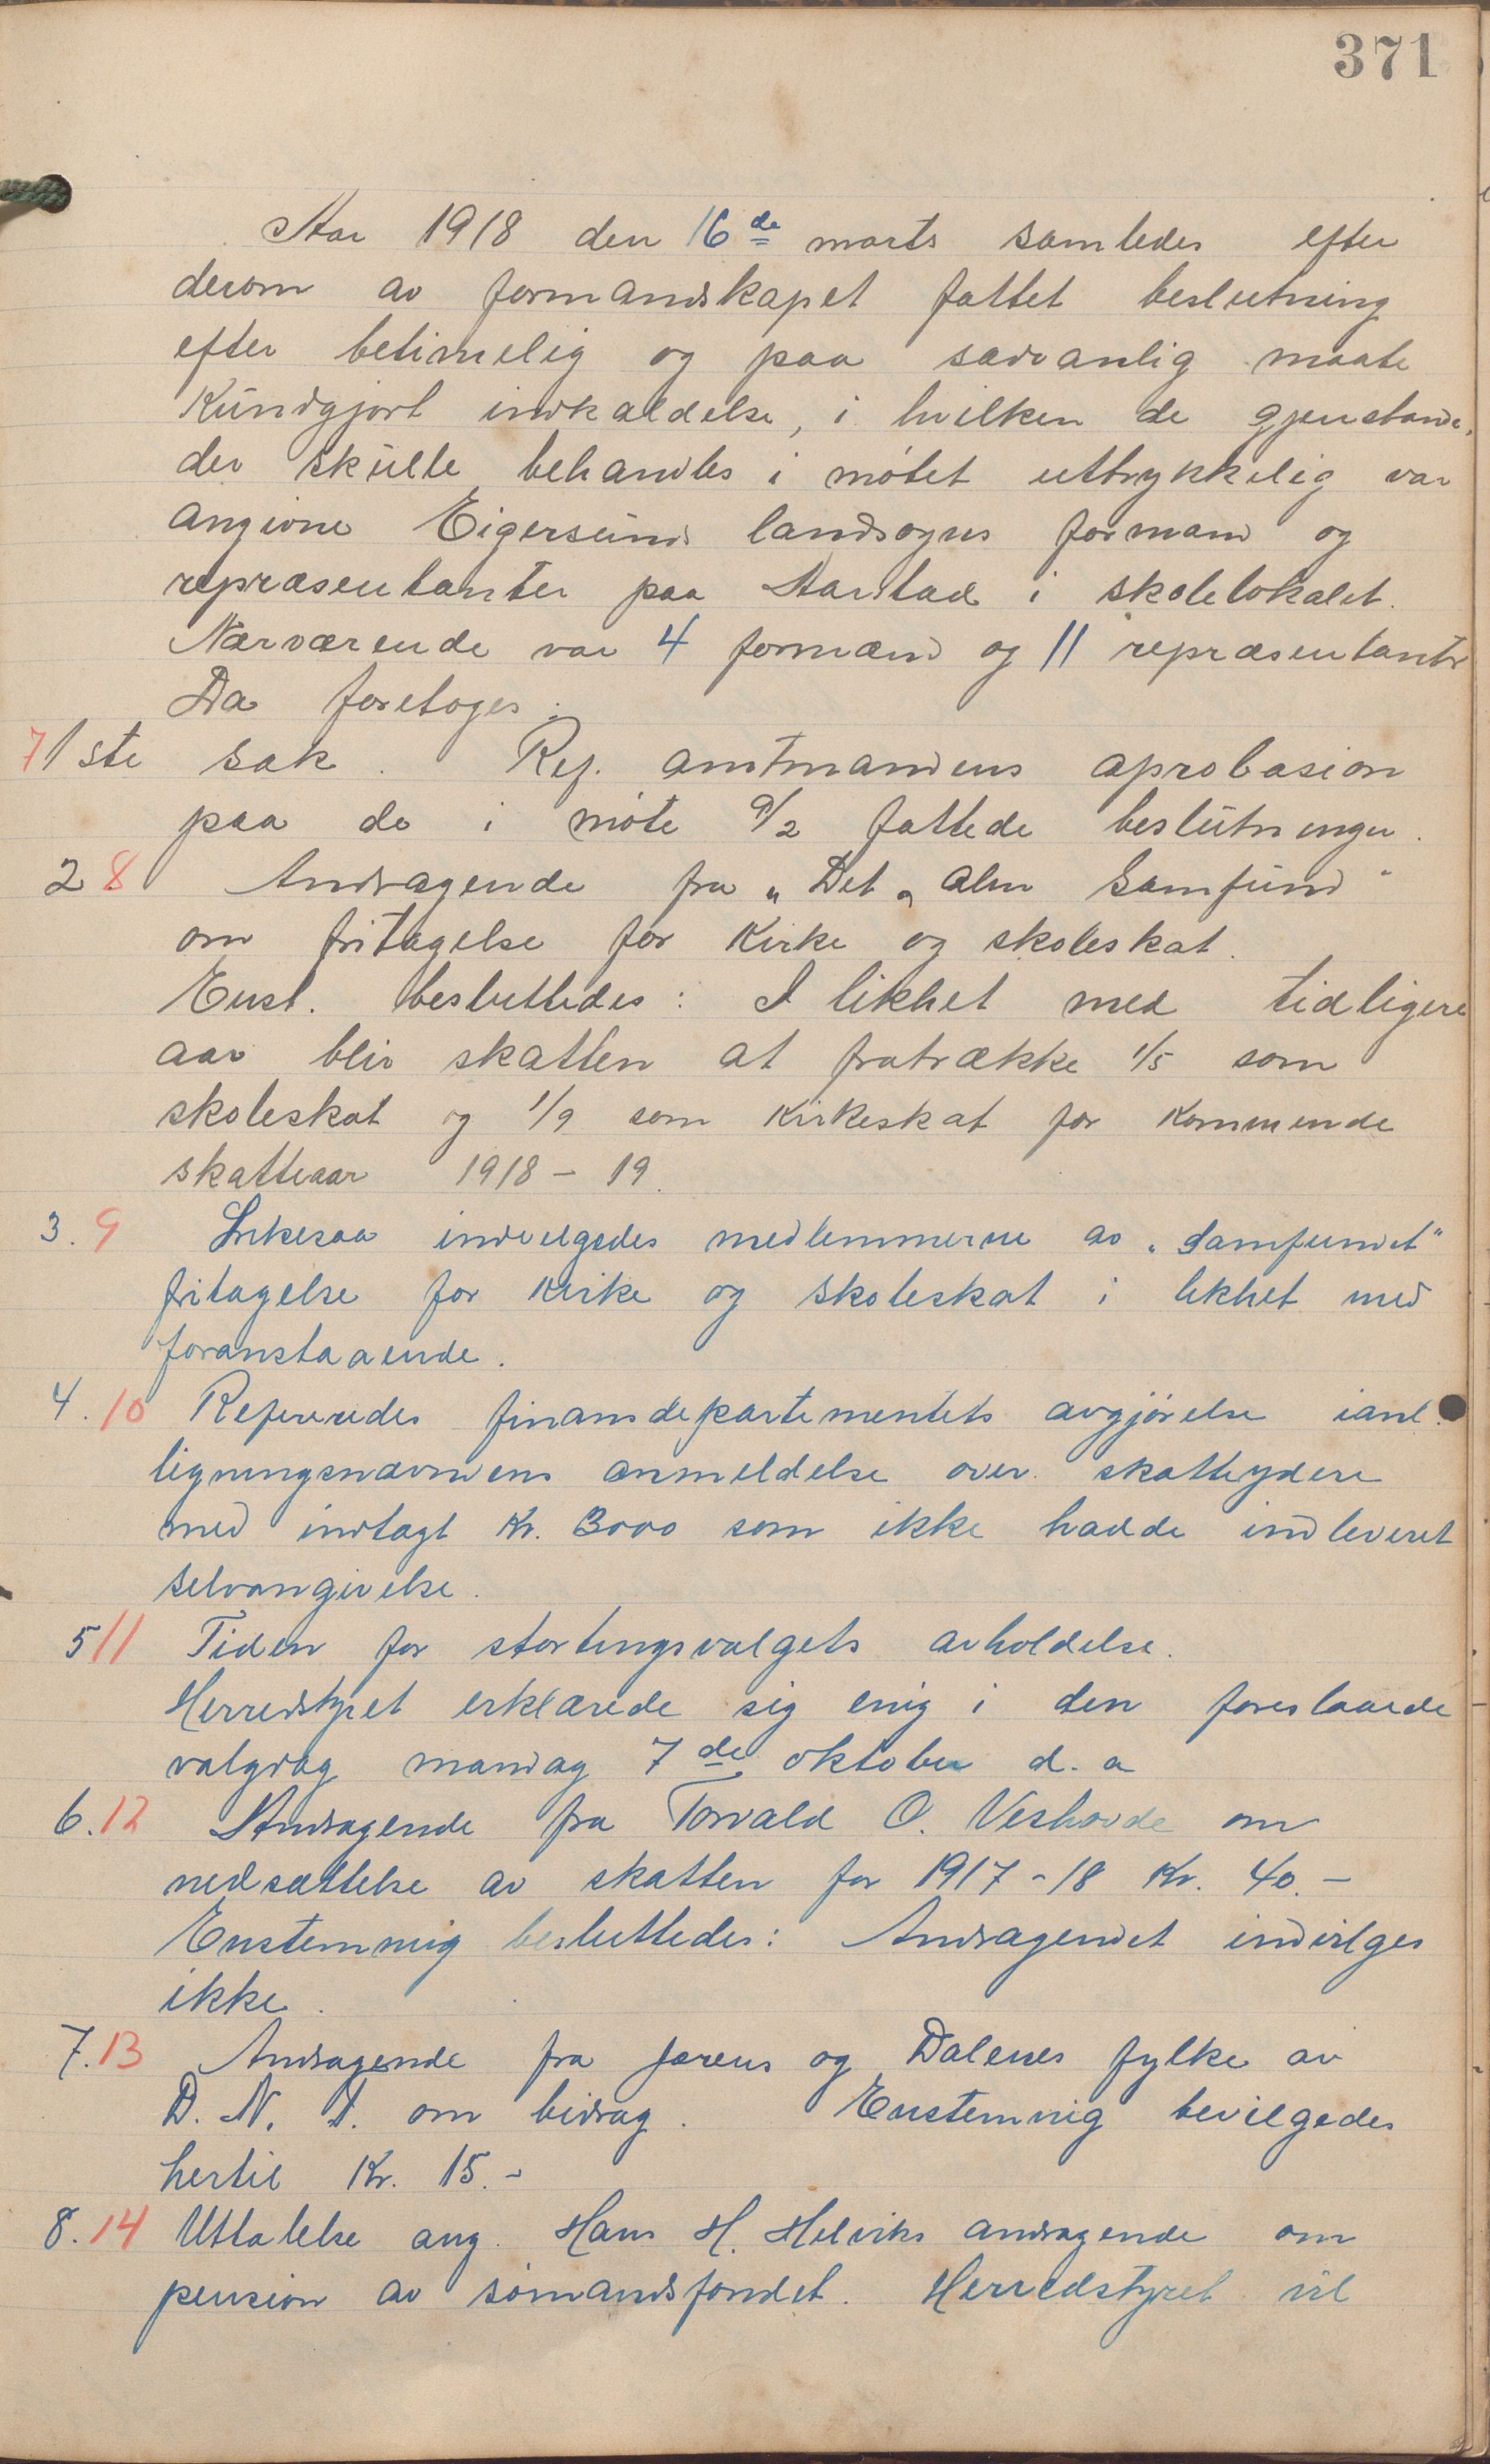 371
Aar 1918 den 16de marts samledes efter
derom av formandskapet fattet beslutning
efter betimelig og paa sædvanlig maate
kundgjort indkaldelse, i hvilken de gjenstande,
der skulle behandles i møtet uttrykkelig var
angivne Eigersunds landsogns formænd og
repræsentanter paa Aarstad i skolelokalet.
Nærværende var 4 formænd og 11 repræsentanter
Da foretoges:
7 1ste sak. Ref. amtmandens aprobasion
paa de i møte 9/2 fattede beslutninger.
2 8 Andragende fra "Det alm Samfund"
om fritagelse for kirke og skoleskat.
Enst. besluttedes: I likhet med tidligere
aar blir skatten at fratrække 1/5 som
skoleskat og 1/9 som kirkeskat for kommende
skatteaar 1918 - 19.
3. 9 Likesaa indvilgedes medlemmerne av "Samfundet"
fritagelse for kirke og skoleskat i likhet med
foranstaaende.
4. 10 Refereredes finansdepartementets avgjørelse ianl.
ligningsnævndens anmeldelse over skatteydere
med indtægt Kr. 3000 som ikke hadde indleveret
selvangivelse.
5 11 Tiden for stortingsvalgets avholdelse.
Herredstyret erklærede sig enig i den foreslaaede
valgdag mandag 7de oktober d. a
6. 12 Andragende fra Torvald O. Veshovde om
nedsættelse av skatten for 1917-18 Kr. 40.-
Enstemmig besluttedes: Andragendet indvilges
ikke.
7. 13 Andragende fra Jærens og Dalenes fylke av
D. N. T. om bidrag. Enstemmig bevilgedes
hertil Kr. 15.-
8. 14 Uttalelse ang. Hans H. Helviks andragende om
pension av sømandsfondet. Herredstyret vil